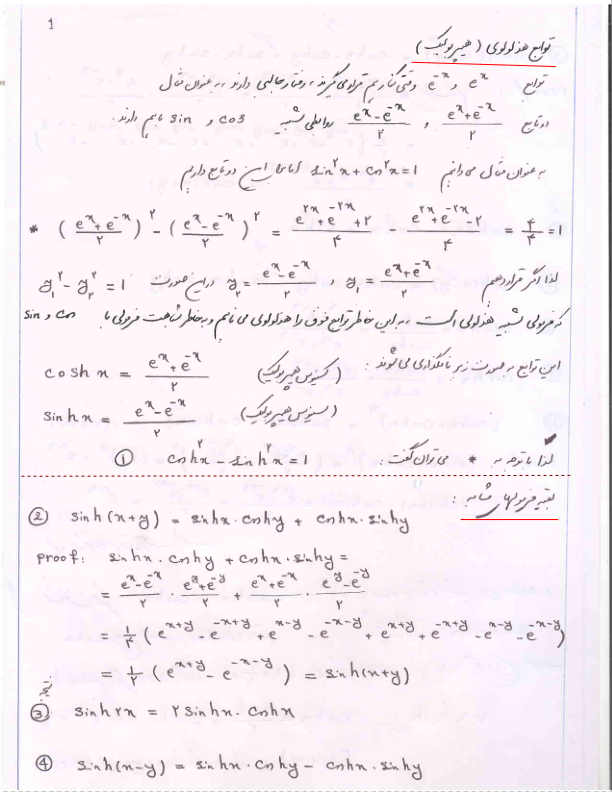 1
توابع هذلولوی (هیپربولیک)
توابع eˣ و e⁻ˣ وقتی کنار هم قرار می گیرند، رفتار جالبی دارند به عنوان مثال
دو تابع (eˣ+e⁻ˣ)/۲ و (eˣ-e⁻ˣ)/۲ روابطی شبیه cos و sin باهم دارند.
به عنوان مثال می دانیم sin^۲ x + cos^۲ x = 1 این دو تابع داریم
* ((eˣ+e⁻ˣ)/۲)^۲ - ((eˣ-e⁻ˣ)/۲)^۲ = (e^۲x + e^-۲x + ۲)/۴ - (e^۲x + e^-۲x - ۲)/۴ = ۴/۴ = 1
لذا اگر قرار دهیم y₁ = (eˣ+e⁻ˣ)/۲ و y₂ = (eˣ-e⁻ˣ)/۲ دراین صورت y₁^۲ - y₂^۲ = 1
که فرمولی شبیه هذلولی است. به این خاطر توابع فوق را هذلولوی می نامیم و به خاطر شباهت فرمولی با cos و sin
این توابع به صورت زیر نامگذاری می شوند:
cosh x = (eˣ+e⁻ˣ)/۲ (کسینوس هیپربولیک)
sinh x = (eˣ-e⁻ˣ)/۲ (سینوس هیپربولیک)
لذا با توجه به * می توان گفت: cosh^۲ x - sinh^۲ x = 1 ①
بقیه فرمولهای مشابه:
② sinh(x+y) = sinhx . coshy + coshx . sinhy
proof: sinhx . coshy + coshx . sinhy =
= (eˣ-e⁻ˣ)/۲ . (e^y+e^-y)/۲ + (eˣ+e⁻ˣ)/۲ . (e^y-e^-y)/۲
= ۱/۴ (e^(x+y) - e^(-x+y) + e^(x-y) - e^(-x-y) + e^(x+y) + e^(-x+y) - e^(x-y) - e^(-x-y))
= ۱/۲ (e^(x+y) - e^(-x-y)) = sinh(x+y)
نتیجه
③ sinh ۲x = ۲ sinhx . coshx
④ sinh(x-y) = sinhx . coshy - coshx . sinhy